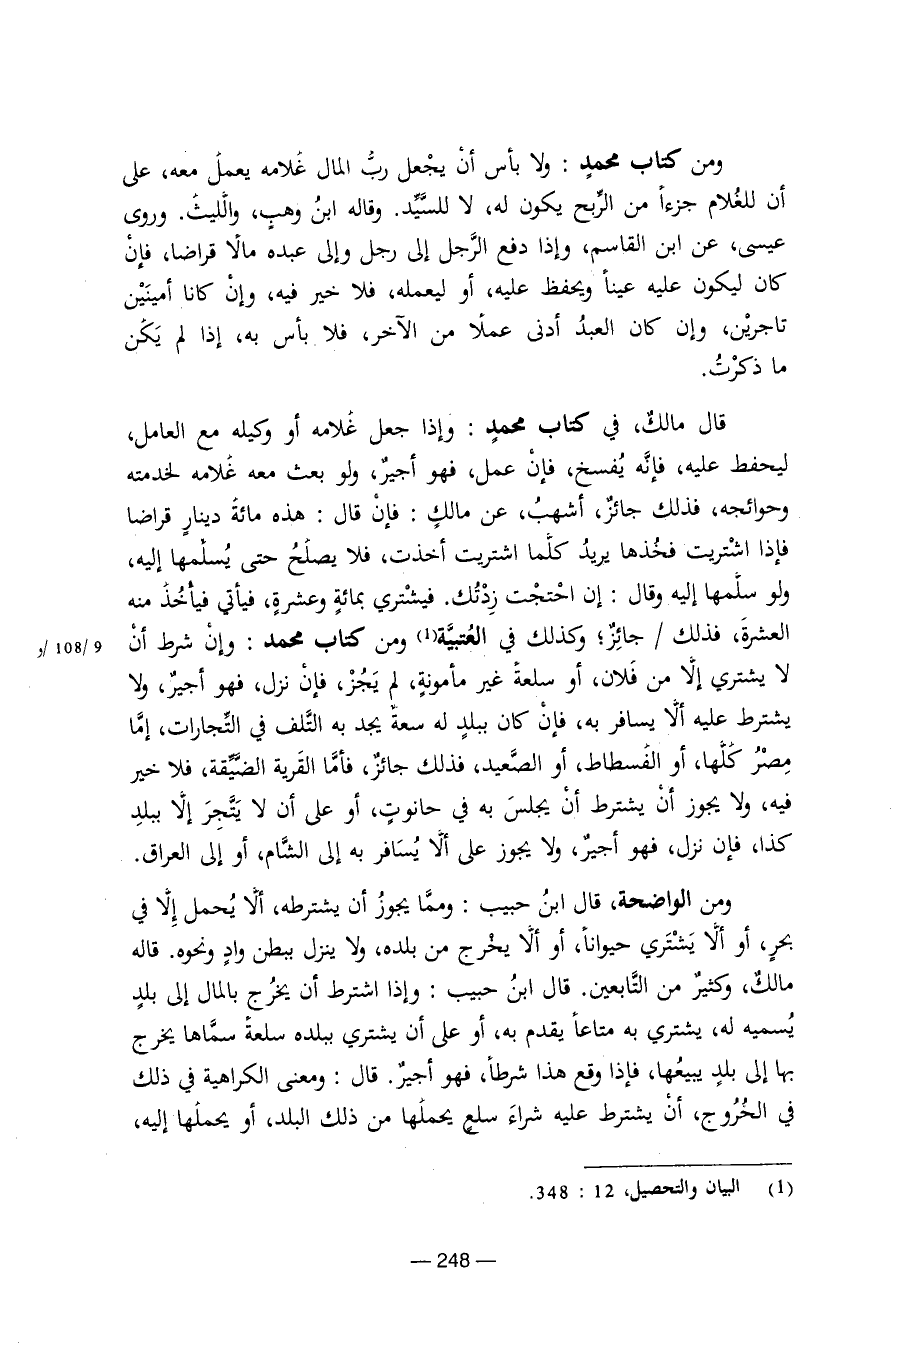 ومن كتاب محمدٍ : ولا بأس أنْ يجْعل ربُّ المال غُلامه يعملُ معه، على
أن للغُلام جزءاً من الرِّبح يكون له، لا للسَّيِّد. وقاله ابنُ وهبٍ، والَّليثُ. وروى
عيسى، عن ابن القاسم، وإذا دفع الرَّجل إلى رجل وإلى عبده مالًا قراضا، فإنْ
كان ليكون عليه عيناً ويحفظ عليه، أو ليعمله، فلا خير فيه، وإنْ كانا أمينَيْن
تاجريْن، وإن كان العبدُ أدنى عملًا من الآخر، فلا بأس به، إذا لم يَكُن
ما ذكرْتُ.
قال مالكٌ، في كتاب محمدٍ : وإذا جعل غُلامه أو وكيله مع العامل،
ليحفط عليه، فإنَّه يُفسخ، فإنْ عمل، فهو أجيرٌ، ولو بعث معه غُلامه لخدمته
وحوائجه، فذلك جائزٌ، أشهبُ، عن مالكٍ : فإنْ قال : هذه مائةُ دينارٍ قراضا
فإذا اشْتريت فخُذها يريدُ كلَّما اشتريت أخذت، فلا يصلُحُ حتى يُسلِّمها إليه،
ولو سلَّمها إليه وقال : إن احْتجْت زِدْتُك. فيشْتري بمائةٍ وعشرةٍ، فيأتي فيأخُذُ منه
العشرةَ، فذلك / جائزٌ؛ وكذلك في العُتبيَّة(1) ومن كتاب محمد : وإنْ شرط أنْ
9 /108 /و
لا يشتري إلَّا من فَلان، أو سلعةً غير مأمونةٍ، لم يَجُزْ، فإنْ نزل، فهو أجيرٌ، ولا
يشترط عليه ألَّا يسافر به، فإنْ كان ببلدٍ له سعةٌ يجد به التَّلف في التِّجارات، إمَّا
مِصْرُ كلُّها، أو الفُسطاط، أو الصَّعيد، فذلك جائزٌ، فأمَّا القَرية الضيِّقة، فلا خير
فيه، ولا يجوز أنْ يشترط أنْ يجلسَ به في حانوتٍ، أو على أن لا يَتَّجِرَ إلَّا ببلدِ
كذا، فإن نزل، فهو أجيرٌ، ولا يجوز على ألَّا يُسَافر به إلى الشَّام، أو إلى العراق.
ومن الواضحة، قال ابنُ حبيب : وممَّا يجوزُ أن يشترطه، ألَّا يُحمل إلَّا في
بحرٍ، أو ألَّا يَشْتَري حيواناً، أو ألَّا يخْرج من بلده، ولا ينزل ببطن وادٍ ونحوه. قاله
مالكٌ، وكثيرٌ من التَّابعين. قال ابنُ حبيب : وإذا اشترط أن يخرُج بالمال إلى بلدٍ
يُسميه له، يشتري به متاعاً يقدم به، أو على أن يشتري ببلده سلعةً سمَّاها يخرج
بها إلى بلدٍ يبيعُها، فإذا وقع هذا شرطاً، فهو أجيرٌ. قال : ومعنى الكراهية في ذلك
في الخُرُوج، أنْ يشترط عليه شراءَ سلعٍ يحملُها من ذلك البلد، أو يحملُها إليه،
(1) البيان والتحصيل، 12 : 348.
— 248 —